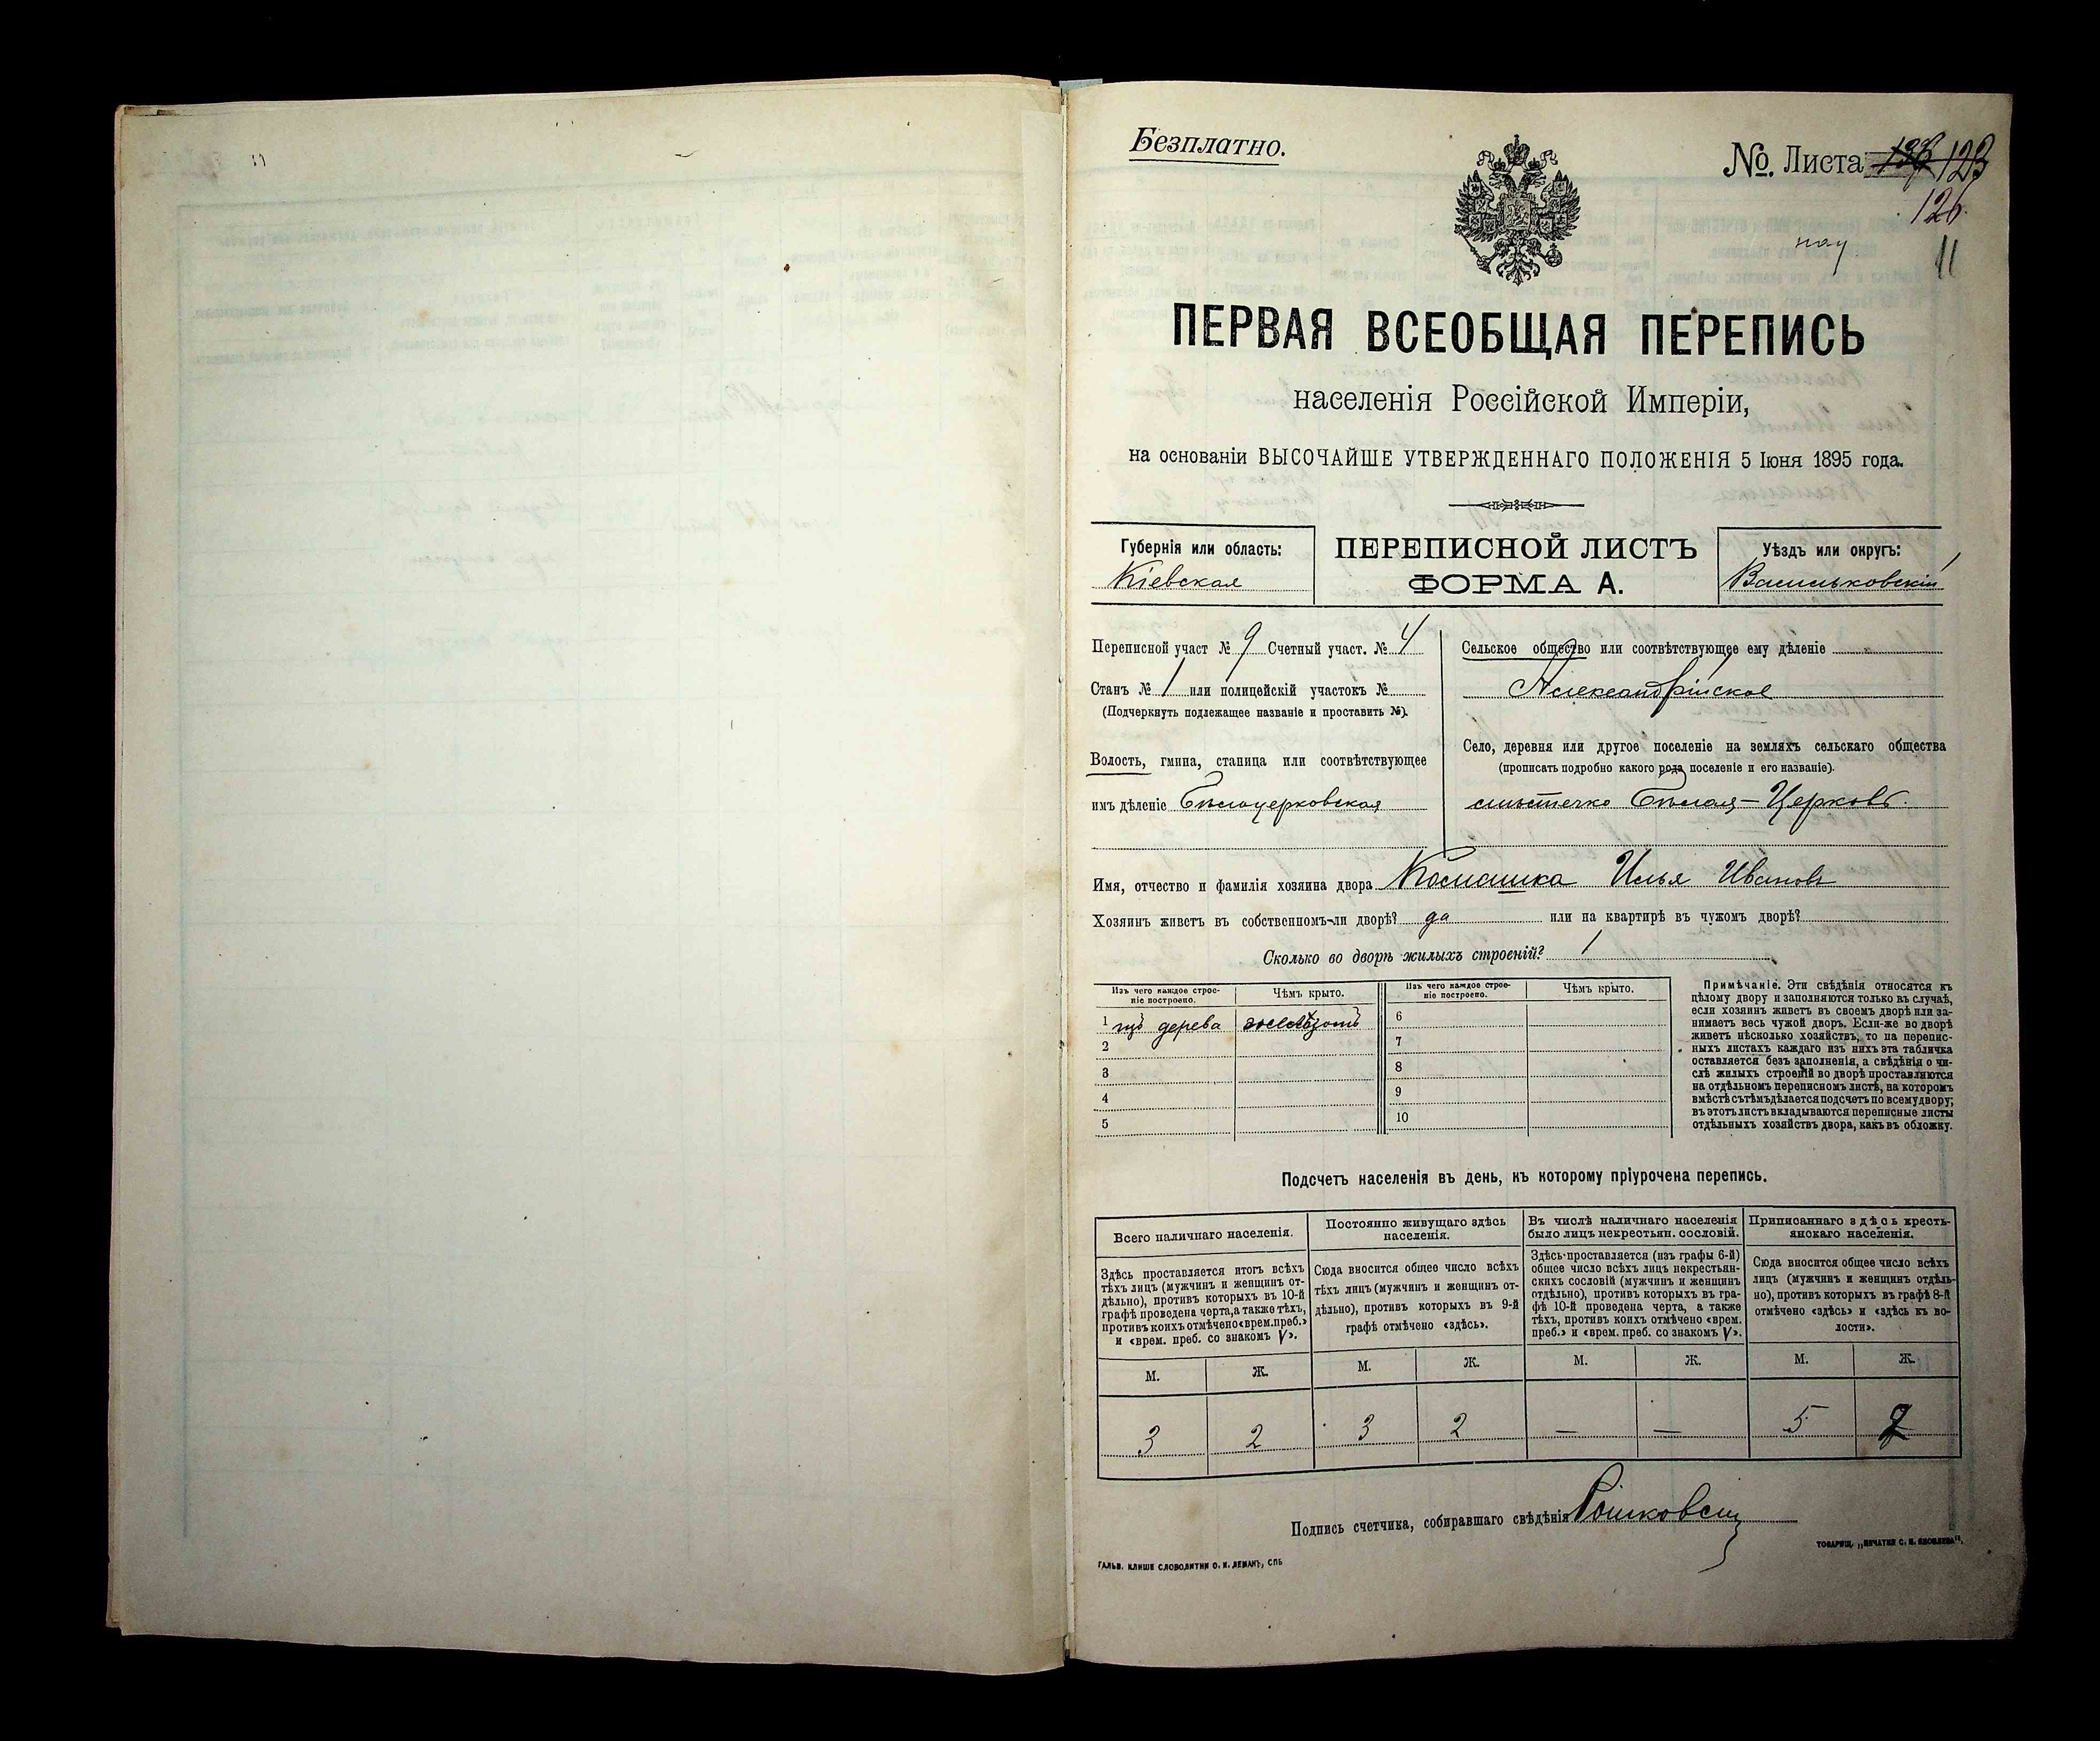 Безплатно.
№. Листа 123
126.
11
ПЕРВАЯ ВСЕОБЩАЯ ПЕРЕПИСЬ
населенія Россійской Имперіи,
на основаніи ВЫСОЧАЙШЕ УТВЕРЖДЕННАГО ПОЛОЖЕНІЯ 5 Іюня 1895 года.
Губернія или область:
Кіевская
ПЕРЕПИСНОЙ ЛИСТЪ
ФОРМА А.
Уѣздъ или округъ:
Васильковскій
Переписной участ № 9 Счетный участ. № 4
Станъ № 1 или полицейскій участокъ №
(Подчеркнуть подлежащее названіе и проставить №).
Волость, гмина, станица или соотвѣтствующее
имъ дѣленіе Бѣлоцерковская
Сельское общество или соотвѣтствующее ему дѣленіе
Александрійское
Село, деревня или другое поселеніе на земляхъ сельскаго общества
(прописать подробно какого рода поселеніе и его названіе).
мѣстечко Бѣлая-Церковь.
Имя, отчество и фамилія хозяина двора Космашка Илья Ивановъ
Хозяинъ живетъ въ собственномъ-ли дворѣ? да или на квартирѣ въ чужомъ дворѣ?
Сколько во дворѣ жилыхъ строеній? 1
Изъ чего каждое строеніе построено. Чѣмъ крыто. Изъ чего каждое строеніе построено. Чѣмъ крыто.
1 изъ дерева желѣзомъ 6
2 7
3 8
4 9
5 10
Примѣчаніе. Эти свѣдѣнія относятся къ
цѣлому двору и заполняются только въ случаѣ,
если хозяинъ живетъ въ своемъ дворѣ или за-
нимаетъ весь чужой дворъ. Если-же во дворѣ
живетъ нѣсколько хозяйствъ, то на перепис-
ныхъ листахъ каждаго изъ нихъ эта табличка
оставляется безъ заполненія, а свѣдѣнія о чи-
слѣ жилыхъ строеній во дворѣ проставляются
на отдѣльномъ переписномъ листѣ, на которомъ
вмѣстѣ съ тѣмъ дѣлается подсчетъ по всему двору;
въ этотъ листъ вкладываются переписные листы
отдѣльныхъ хозяйствъ двора, какъ въ обложку.
Подсчетъ населенія въ день, къ которому пріурочена перепись.
Всего наличнаго населенія.
Здѣсь проставляется итогъ всѣхъ
тѣхъ лицъ (мужчинъ и женщинъ от-
дѣльно), противъ которыхъ въ 10-й
графѣ проведена черта, а также тѣхъ,
противъ коихъ отмѣчено «врем. преб.»
и «врем. преб. со знакомъ V».
М. Ж.
3 2
Постоянно живущаго здѣсь
населенія.
Сюда вносится общее число всѣхъ
тѣхъ лицъ (мужчинъ и женщинъ от-
дѣльно), противъ которыхъ въ 9-й
графѣ отмѣчено «здѣсь».
М. Ж.
3 2
Въ числѣ наличнаго населенія
было лицъ некрестьян. сословій.
Здѣсь проставляется (изъ графы 6-й)
общее число всѣхъ лицъ некрестьян-
скихъ сословій (мужчинъ и женщинъ
отдѣльно), противъ которыхъ въ гра-
фѣ 10-й проведена черта, а также
тѣхъ, противъ коихъ отмѣчено «врем.
преб.» и «врем. преб. со знакомъ V».
М. Ж.
— —
Приписаннаго здѣсь кресть-
янскаго населенія.
Сюда вносится общее число всѣхъ
лицъ (мужчинъ и женщинъ отдѣль-
но), противъ которыхъ въ графѣ 8-й
отмѣчено «здѣсь» и «здѣсь къ во-
лости».
М. Ж.
5 2
Подпись счетчика, собиравшаго свѣдѣнія
ГАЛЬВ. КЛИШЕ СЛОВОЛИТНИ О. И. ЛЕМАНЪ, СПБ
ТОВАРИЩ. „ПЕЧАТНЯ С. П. ЯКОВЛЕВА“.